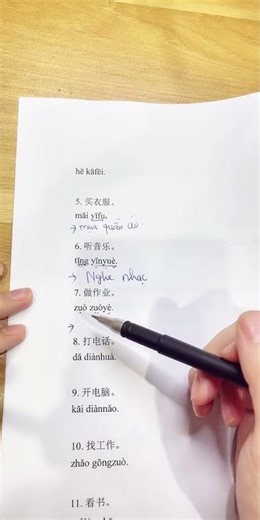 hē kāfēi.
5. 买衣服。
mǎi yīfu.
→ mua quần áo
6. 听音乐。
tīng yīnyuè.
→ Nghe nhạc
7. 做作业。
zuò zuòyè.
→
8. 打电话。
dǎ diànhuà.
9. 开电脑。
kāi diànnǎo.
10. 找工作。
zhǎo gōngzuò.
11. 看书。